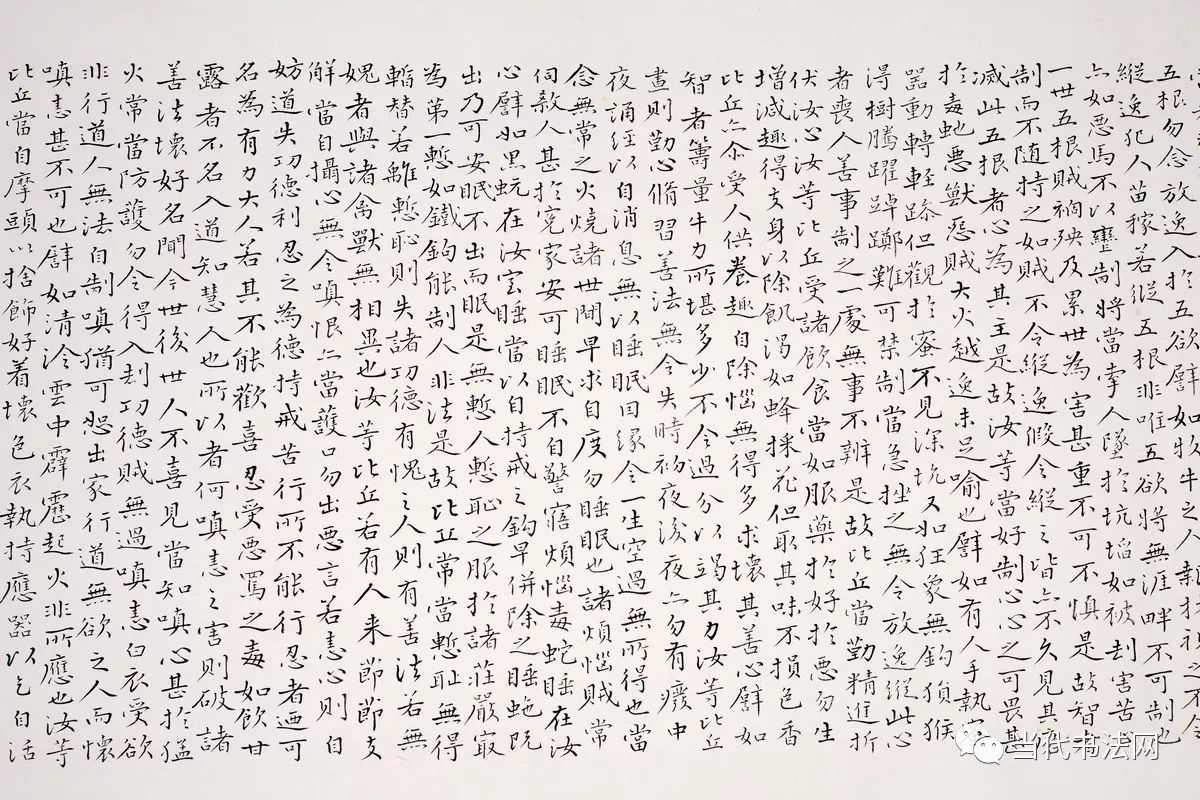 五根勿念放逸入於五欲譬如牧牛之人執杖視之不令
縱逸犯人苗稼若縱五根非唯五欲將無涯畔不可制也
亦如惡馬不以轡制將當牽人墜於坑埳如被刦害苦
一世五根賊禍殃及累世為害甚重不可不慎是故智
制而不随持之如賊不令縱逸假令縱之皆亦不久見其
滅此五根者心為其主是故汝等當好制心心之可畏甚
於毒虵惡獸怨賊大火越逸未足喻也譬如有人手執蜜
器動轉輕躁但觀於蜜不見深坑又如狂象無鈎猿猴
得樹騰躍踔躑難可禁制當急挫之無令放逸縱此心
者喪人善事制之一處無事不辨是故比丘當勤精進折
伏汝心汝等比丘受諸飲食當如服藥於好於惡勿生
增減趣得支身以除飢渴如蜂採花但取其味不損色香
比丘亦尒受人供養趣自除惱無得多求壞其善心譬如
智者籌量牛力所堪多少不令過分以竭其力汝等比丘
晝則勤心脩習善法無令失時初夜後夜亦勿有廢中
夜誦經以自消息無以睡眠因緣令一生空過無所得也當
念無常之火燒諸世間早求自度勿睡眠也諸煩惱賊常
伺煞人甚於怨家安可睡眠不自警寤煩惱毒蛇睡在汝
心譬如黑蚖在汝室睡當以自持戒之鈎早併除之睡虵既
出乃可安眠不出而眠是無慙人慙恥之服於諸莊嚴冣
為第一慙如鐵鈎能制人非法是故比丘常當慙耻無得
暫替若離慙恥則失諸功德有愧之人則有善法若無
媿者與諸禽獸無相異也汝等比丘若有人来節節支
解當自攝心無令嗔恨亦當護口勿出惡言若恚心則自
妨道失功德利忍之為德持戒苦行所不能行忍者迺可
名為有力大人若其不能歡喜忍受惡罵之毒如飲甘
露者不名入道知慧人也所以者何嗔恚之害則破諸
善法壞好名聞今世後世人不喜見當知嗔心甚於猛
火常當防護勿令得入刦功德賊無過嗔恚白衣受欲
非行道人無法自制嗔猶可恕出家行道無欲之人而懷
嗔恚甚不可也譬如清冷雲中霹靂起火非所應也汝等
比丘當自摩頭以捨飾好着壞色衣執持應器以乞自活
当代书法网